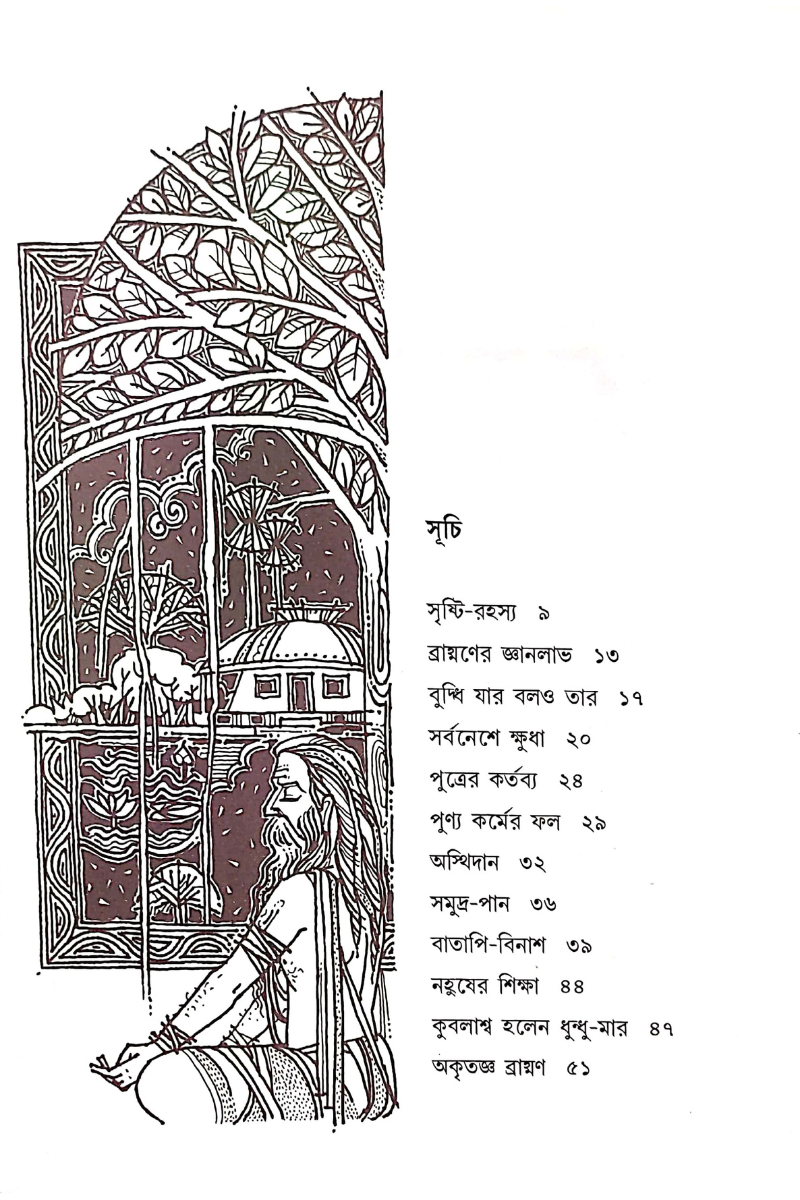 সূচি
সৃষ্টি-রহস্য ৯
ব্রাহ্মণের জ্ঞানলাভ ১৩
বুদ্ধি যার বলও তার ১৭
সর্বনেশে ক্ষুধা ২০
পুত্রের কর্তব্য ২৪
পুণ্য কর্মের ফল ২৯
অস্থিদান ৩২
সমুদ্র-পান ৩৬
বাতাপি-বিনাশ ৩৯
নহুষের শিক্ষা ৪৪
কুবলাশ্ব হলেন ধুন্ধু-মার ৪৭
অকৃতজ্ঞ ব্রাহ্মণ ৫১